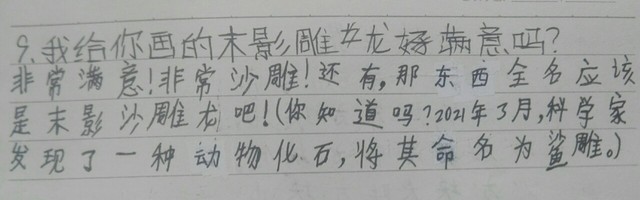 9.我给你画的末影雕龙好满意吗?
非常满意!非常沙雕!还有,那东西全名应该
是末影沙雕龙吧!(你知道吗?2021年3月,科学家
发现了一种动物化石,将其命名为鲨雕。)